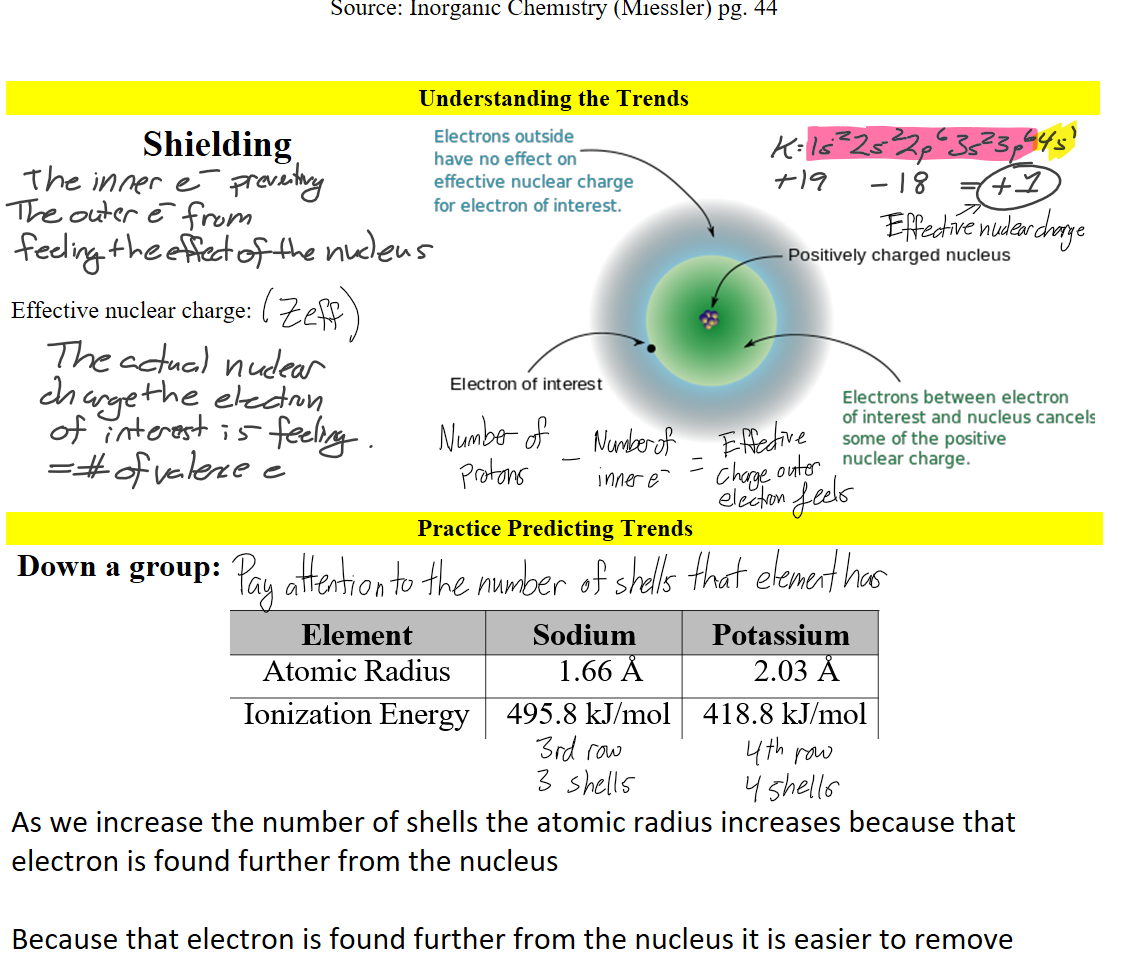 Source: Inorganic Chemistry (Miessler) pg. 44
Understanding the Trends
Shielding
The inner e⁻ preventing
The outer e⁻ from
feeling the effect of the nucleus
Effective nuclear charge: (Zeff)
The actual nuclear
charge the electron
of interest is feeling.
=# of valence e
Electrons outside
have no effect on
effective nuclear charge
for electron of interest.
K: 1s²2s²2p⁶3s²3p⁶4s¹
+19 -18 = +1
Effective nuclear charge
Positively charged nucleus
Electron of interest
Electrons between electron
of interest and nucleus cancels
some of the positive
nuclear charge.
Number of Protons - Number of inner e⁻ = Effective Charge outer electron feels
Practice Predicting Trends
Down a group: Pay attention to the number of shells that element has
Element Sodium Potassium
Atomic Radius 1.66 Å 2.03 Å
Ionization Energy 495.8 kJ/mol 418.8 kJ/mol
3rd row 4th row
3 shells 4 shells
As we increase the number of shells the atomic radius increases because that
electron is found further from the nucleus
Because that electron is found further from the nucleus it is easier to remove